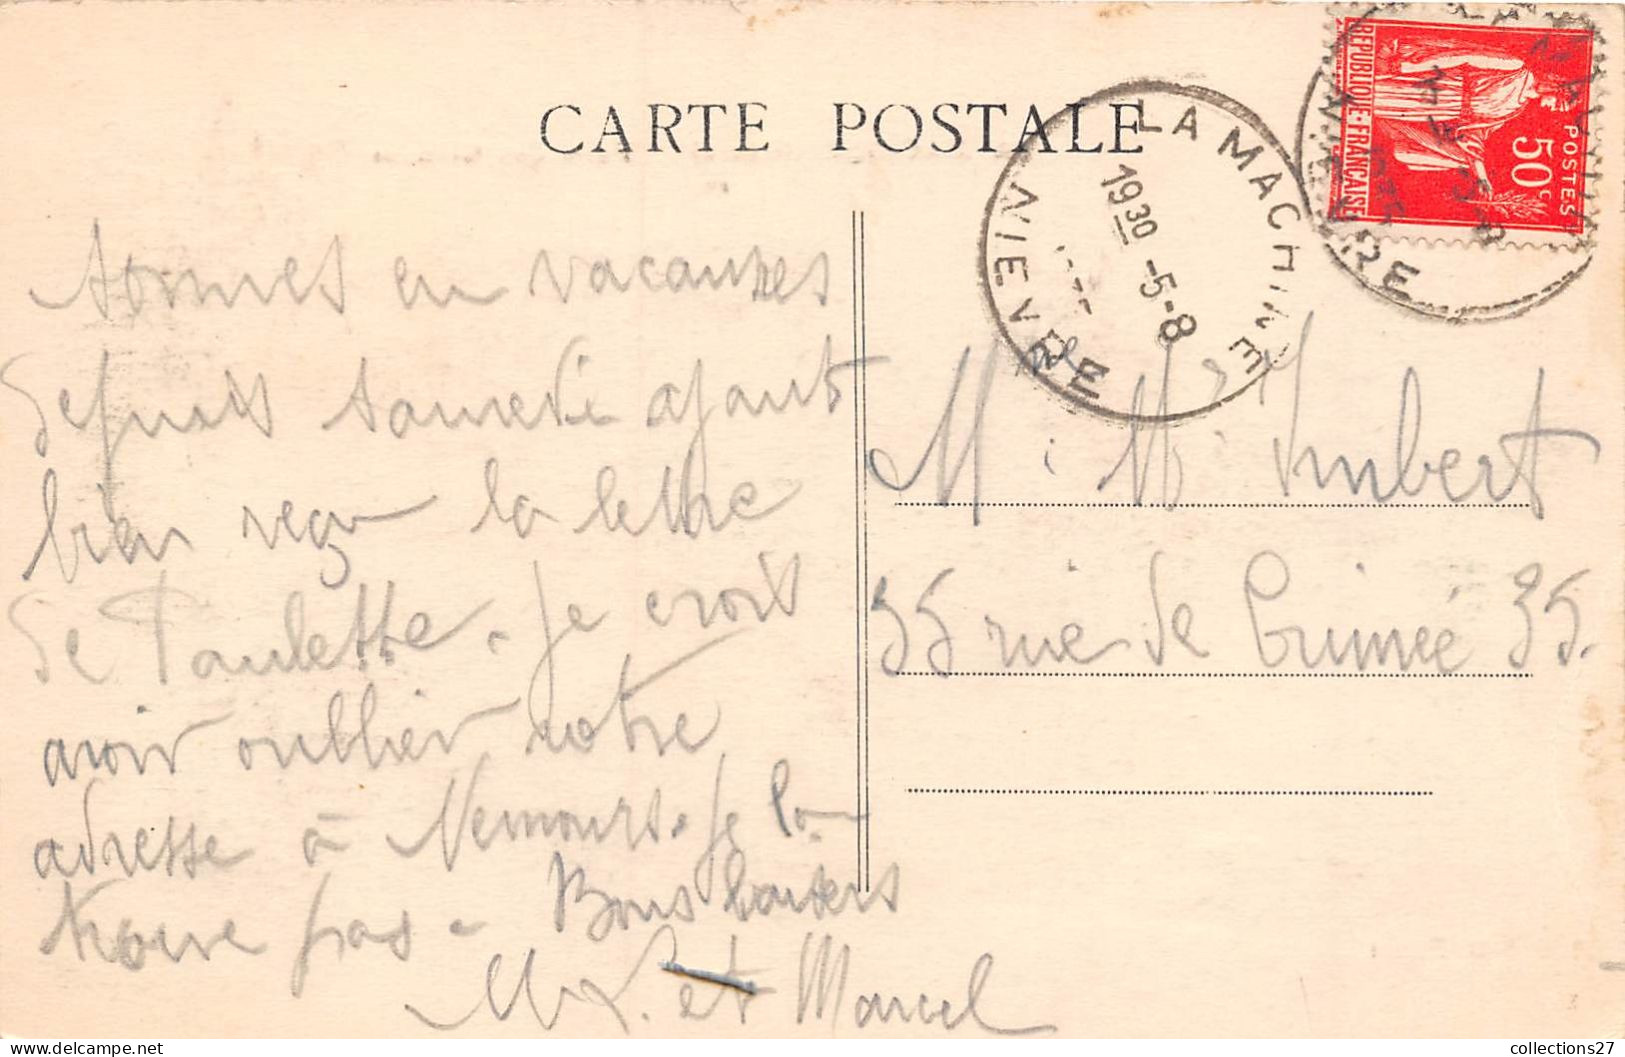 CARTE POSTALE
REPUBLIQUE·FRANÇAISE
POSTES
50c
LA MACHINE
19 30 -5-8
NIEVRE
sommes en vacances
depuis samedi ayant
bien reçu la lettre
de Paulette. Je crois
avoir oublier votre
adresse à Nemours. Je la
trouve pas - Bons baisers
M. L. et Marcel
M. Mme Imbert
35 rue de Crimée 35.
collections27